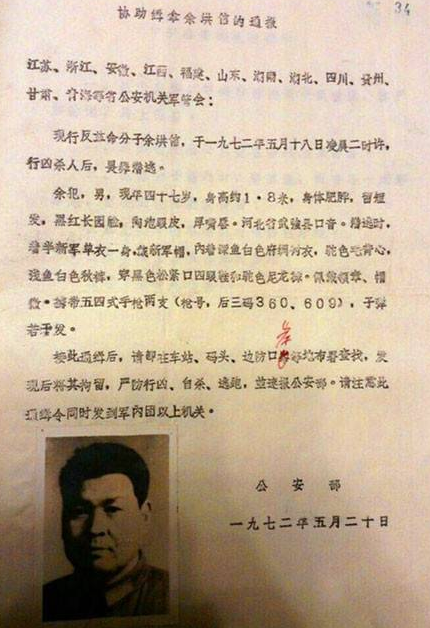 34
协助缉拿余洪信的通报
江苏、浙江、安徽、江西、福建、山东、湖南、湖北、四川、贵州、
甘肃、青海等省公安机关军管会：
现行反革命分子余洪信，于一九七二年五月十八日凌晨二时许，
行凶杀人后，畏罪潜逃。
余犯，男，现年四十七岁，身高约1·8米，身体肥胖，留短
发，黑红长圆脸，肉泡眼皮，厚嘴唇。河北省武强县口音。潜逃时，
着半新军单衣一身，戴新军帽，内着深鱼白色府绸衬衣，驼色毛背心，
浅鱼白色秋裤，穿黑色松紧口四眼鞋和驼色尼龙袜。佩戴领章、帽
徽。携带五四式手枪两支（枪号，后三码360、609），子弹
若干发。
接此通缉后，请即在车站、码头、边防口岸等地布署查找，发
现后将其拘留，严防行凶、自杀、逃跑，并速报公安部。请注意此
通缉令同时发到军内团以上机关。
公安部
一九七二年五月二十日